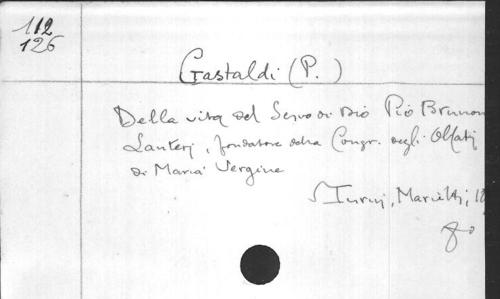 112
126
Gastaldi (P.)
Della vita del Servo di Dio Pio Brunon
Lanteri, fondatore della Congr. degli Oblati
di Maria Vergine
Turin, Marietti, 18
8o